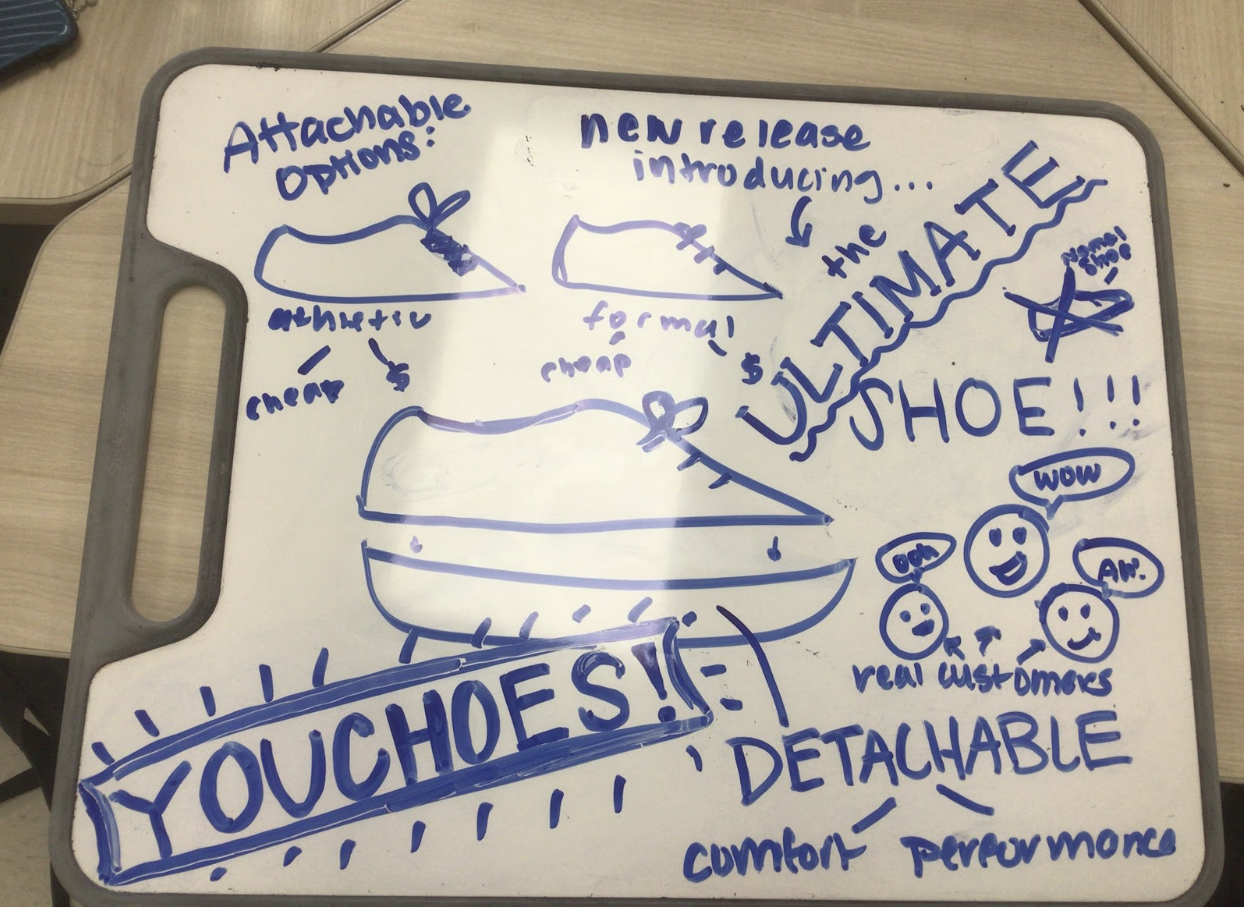 Attachable
Options:
athletic
cheap
$
new release
introducing...
formal
cheap
$
the
ULTIMATE
SHOE!!!
Normal
Shoe
WOW
ooh
AH!
real customers
YOUCHOES!
DETACHABLE
comfort
performance